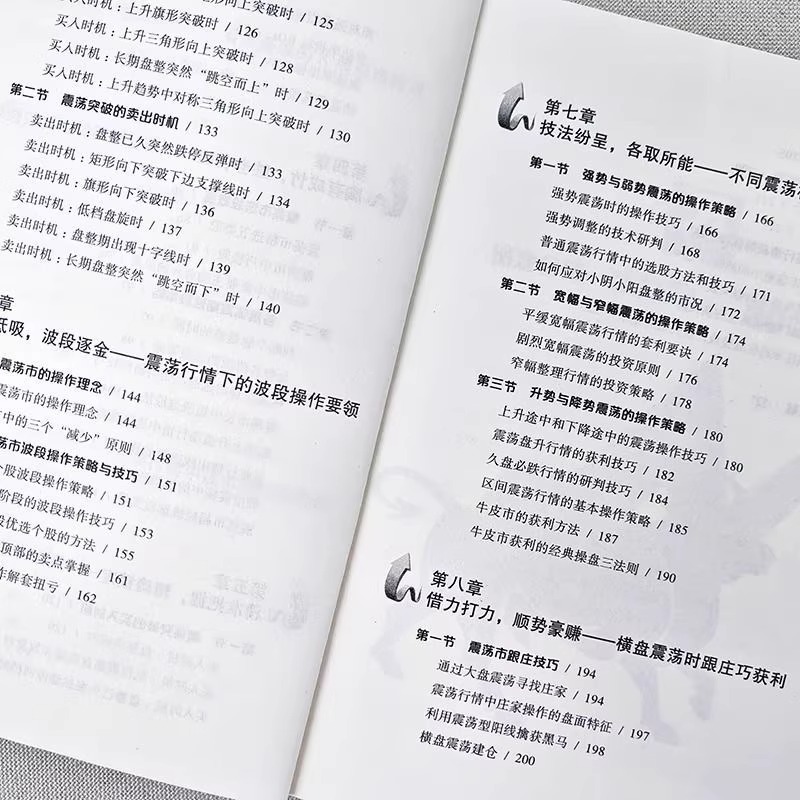 形向上突破时 / 125
上升旗形突破时 / 126
买入时机：上升三角形向上突破时 / 128
买入时机：长期盘整突然“跳空而上”时 / 129
买入时机：上升趋势中对称三角形向上突破时 / 130
第二节 震荡突破的卖出时机 / 133
卖出时机：盘整已久突然跌停反弹时 / 133
卖出时机：矩形向下突破下边支撑线时 / 134
卖出时机：旗形向下突破时 / 136
卖出时机：低档盘旋时 / 137
卖出时机：盘整期出现十字线时 / 139
卖出时机：长期盘整突然“跳空而下”时 / 140
章
低吸，波段逐金——震荡行情下的波段操作要领
震荡市的操作理念 / 144
震荡市的操作理念 / 144
中的三个“减少”原则 / 148
荡市波段操作策略与技巧 / 151
个股波段操作策略 / 151
阶段的波段操作技巧 / 153
段优选个股的方法 / 155
顶部的卖点掌握 / 161
作解套扭亏 / 162
第七章
技法纷呈，各取所能——不同震荡
第一节 强势与弱势震荡的操作策略 / 166
强势震荡时的操作技巧 / 166
强势调整的技术研判 / 168
普通震荡行情中的选股方法和技巧 / 171
如何应对小阴小阳盘整的市况 / 172
第二节 宽幅与窄幅震荡的操作策略 / 174
平缓宽幅震荡行情的套利要诀 / 174
剧烈宽幅震荡的投资原则 / 176
窄幅整理行情的投资策略 / 178
第三节 升势与降势震荡的操作策略 / 180
上升途中和下降途中的震荡操作技巧 / 180
震荡盘升行情的获利技巧 / 182
久盘必跌行情的研判技巧 / 184
区间震荡行情的基本操作策略 / 185
牛皮市的获利方法 / 187
牛皮市获利的经典操盘三法则 / 190
第八章
借力打力，顺势豪赚——横盘震荡时跟庄巧获利
第一节 震荡市跟庄技巧 / 194
通过大盘震荡寻找庄家 / 194
震荡行情中庄家操作的盘面特征 / 197
利用震荡型阳线擒获黑马 / 198
横盘震荡建仓 / 200